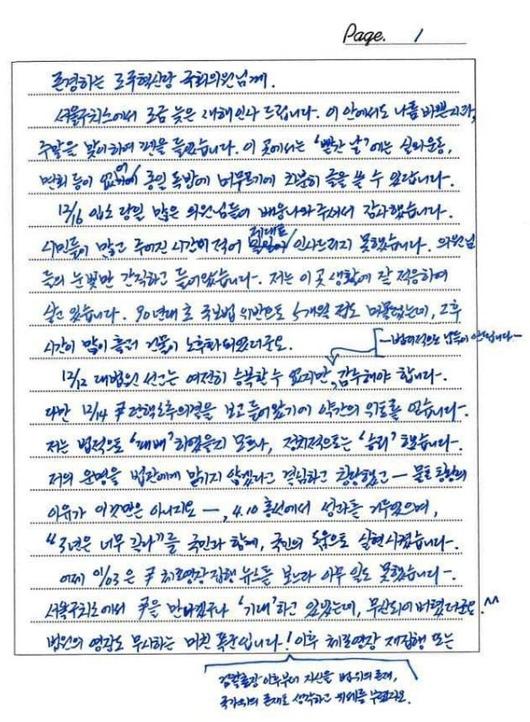 Page. 1
존경하는 조국혁신당 국회의원님께.
서울구치소에서 조금 늦은 새해인사 드립니다. 이 안에서도 나름 바쁜지라,
주말을 맞이하여 펜을 들었습니다. 이 곳에서는 '빨간 날'에는 실외운동,
면회 등이 없어 종일 독방에 머무르기에 차분히 글을 쓸 수 있답니다.
12/16 입소 당일 많은 의원님들이 배웅나와주셔서 감사했습니다.
시민들이 많고 주어진 시간이 적어 제대로 인사드리지 못했습니다. 의원님
들의 눈빛만 간직하고 들어왔습니다. 저는 이 곳 생활에 잘 적응하며
살고 있습니다. 90년대 초 국보법 위반으로 5개월 정도 머물렀는데, 그 후
시간이 많이 흘러 건물이 노후화되었더군요.
—법리적으로 납득이 안 됩니다—
12/12 대법원 선고는 여전히 승복할 수 없지만, 감수해야 합니다.
다만 12/14 尹 탄핵소추의결을 보고 들어왔기에 약간의 위로를 얻습니다.
저는 법적으로 '패배'하였을지 모르나, 정치적으로는 '승리'했습니다.
저의 운명을 법관에게 맡기지 않겠다고 결심하고 창당했고 — 물론 창당의
이유가 이것만은 아니지요 —, 4.10 총선에서 성과를 거두었으며,
"3년은 너무 길다"를 국민과 함께, 국민의 도움으로 실현시켰습니다.
어제 01/03은 尹 체포영장 집행 뉴스를 보느라 아무 일도 못했습니다.
서울구치소에서 尹을 만나겠구나 '기대'하고 있었는데, 무산되어 버렸더군요. ^^
법원의 영장도 무시하는 미친 폭군입니다! 이후 체포영장 재집행 또는
검찰총장 이후부터 자신을 법 위의 존재,
국가 위의 존재로 생각하고 위세를 부렸지요.